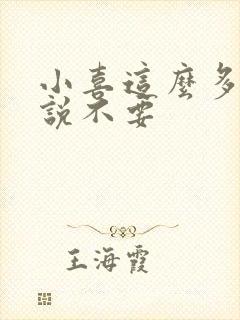 小喜這麼多
說不要
王海霞